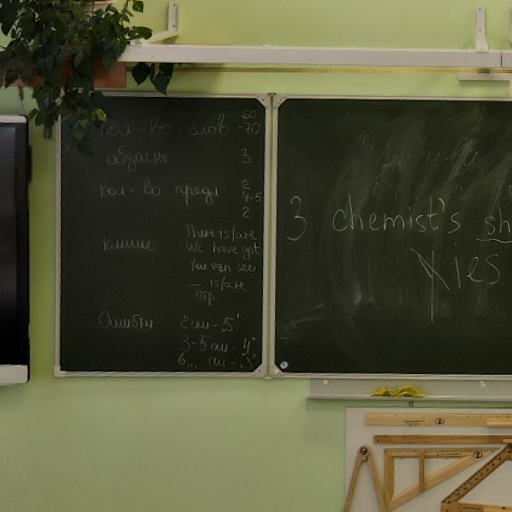 60
кол-во слов -70
абзацы 3
кол-во предл 2
4-5
2
There is/are
клише We have got
You can see
— is/are
Ошибки 2 ош - 5
3-5 ош - 4
6... ош - 3
3 chemist's sh
ies